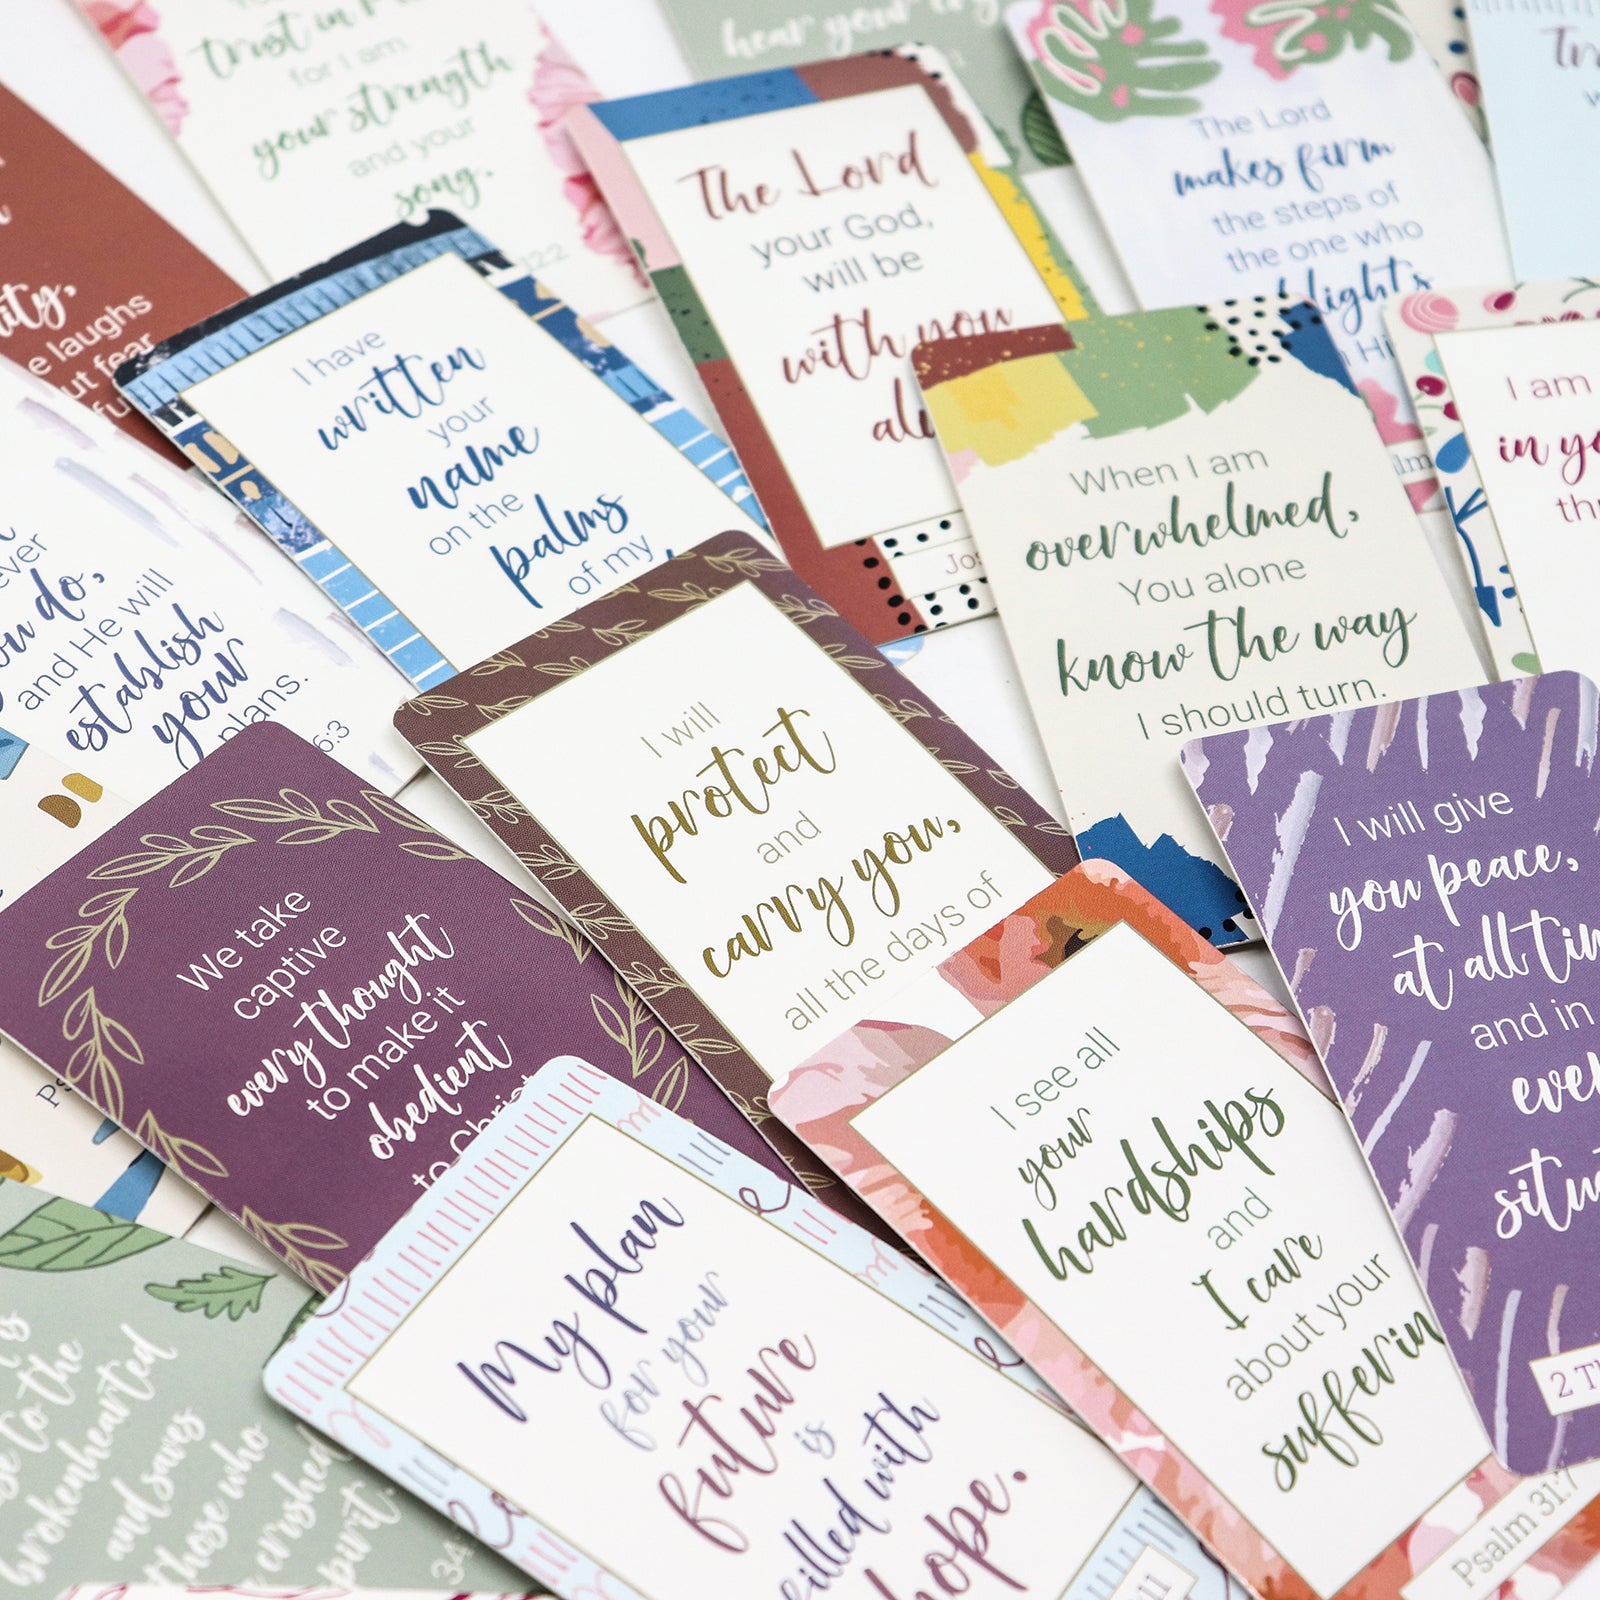 trust in Me
for I am
your strength
and your
song.
12:2
hear your cry
The Lord
makes firm
the steps of
the one who
lights
Hi
lm
The Lord
your God,
will be
with you
Jos
ity,
laughs
fear
I have
written
your
name
on the
palms
of my
When I am
overwhelmed,
You alone
know the way
I should turn.
I am
in yo
thr
ever
you do,
and He will
establish
your
plans.
6:3
I will
protect
and
carry you,
all the days of
I will give
you peace,
at all tim
and in
ever
situ
2 Th
We take
captive
every thought
to make it
obedient
to Christ
I see all
your
hardships
and
I care
about your
sufferin
Psalm 31:7
My plan
for your
future
is
filled with
hope.
:11
Ps
is
se to the
brokenhearted
and saves
those who
crushed
spirit.
34: